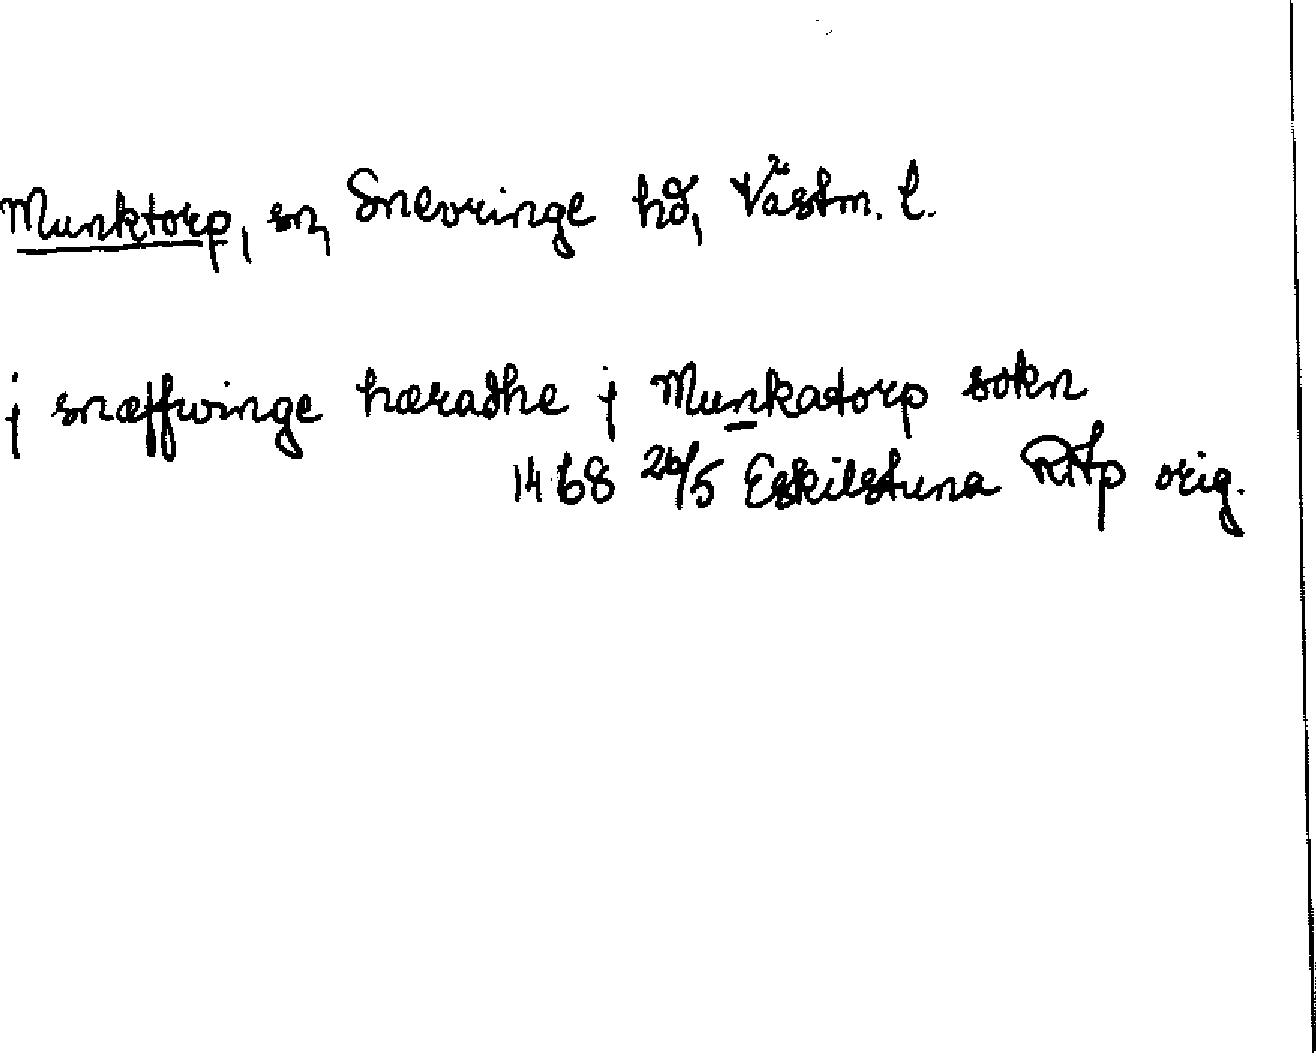 Munktorp, sn, Snevringe hd, Västm. l.
j snæffwinge hæradhe j Munkatorp sokn
1468 26/5 Eskilstuna RAp orig.